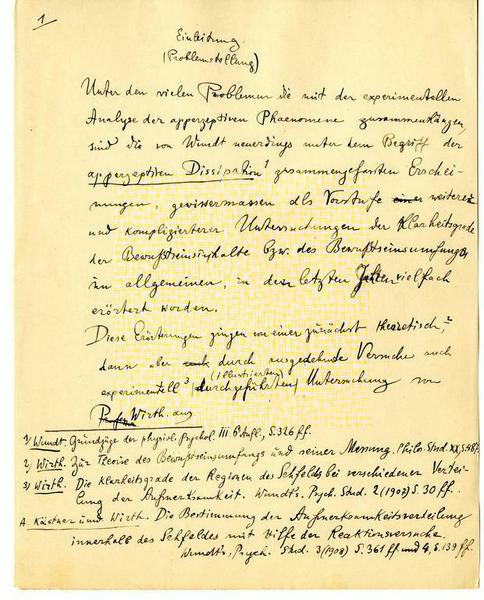 1
Einleitung.
(Problemstellung)
Unter den vielen Problemen die mit der experimentellen
Analyse der apperzeptiven Phaenomene zusammenhängen,
sind die von Wundt neuerdings unter dem Begriff der
apperzeptiven Dissipation¹ zusammengefassten Erschei-
nungen, gewissermassen als Vorstufe einer weiteren
und komplizierterer Untersuchungen der Klarheitsgrade
der Bewußtseinsinhalte bzw. des Bewußtseinsumfangs
im allgemeinen, in den letzten Jahren vielfach
erörtert worden.
Diese Erörterungen gingen von einer zunächst theoretisch,²
dann aber auch durch ausgedehnte Versuche auch
(illustrierten)
experimentell³ (durchgeführten) Untersuchung von
Profess Wirth aus
1) Wundt. Grundzüge der physiol. Psychol. III 6. Aufl., S. 326 ff.
2) Wirth. Zur Theorie des Bewußtseinsumfangs und seiner Messung. Philos. Stud. XX, S. 487.
3) Wirth. Die Klarheitsgrade der Regionen des Sehfeldes bei verschiedener Vertei-
lung der Aufmerksamkeit. Wundt's. Psych. Stud. 2 (1907) S. 30 ff.
A. Kästner und Wirth. Die Bestimmung der Aufmerksamkeitsverteilung
innerhalb des Sehfeldes mit Hilfe der Reaktionsversuche.
Wundt's, Psych. Stud. 3 (1908) S. 361 ff und 4, S. 139 ff.